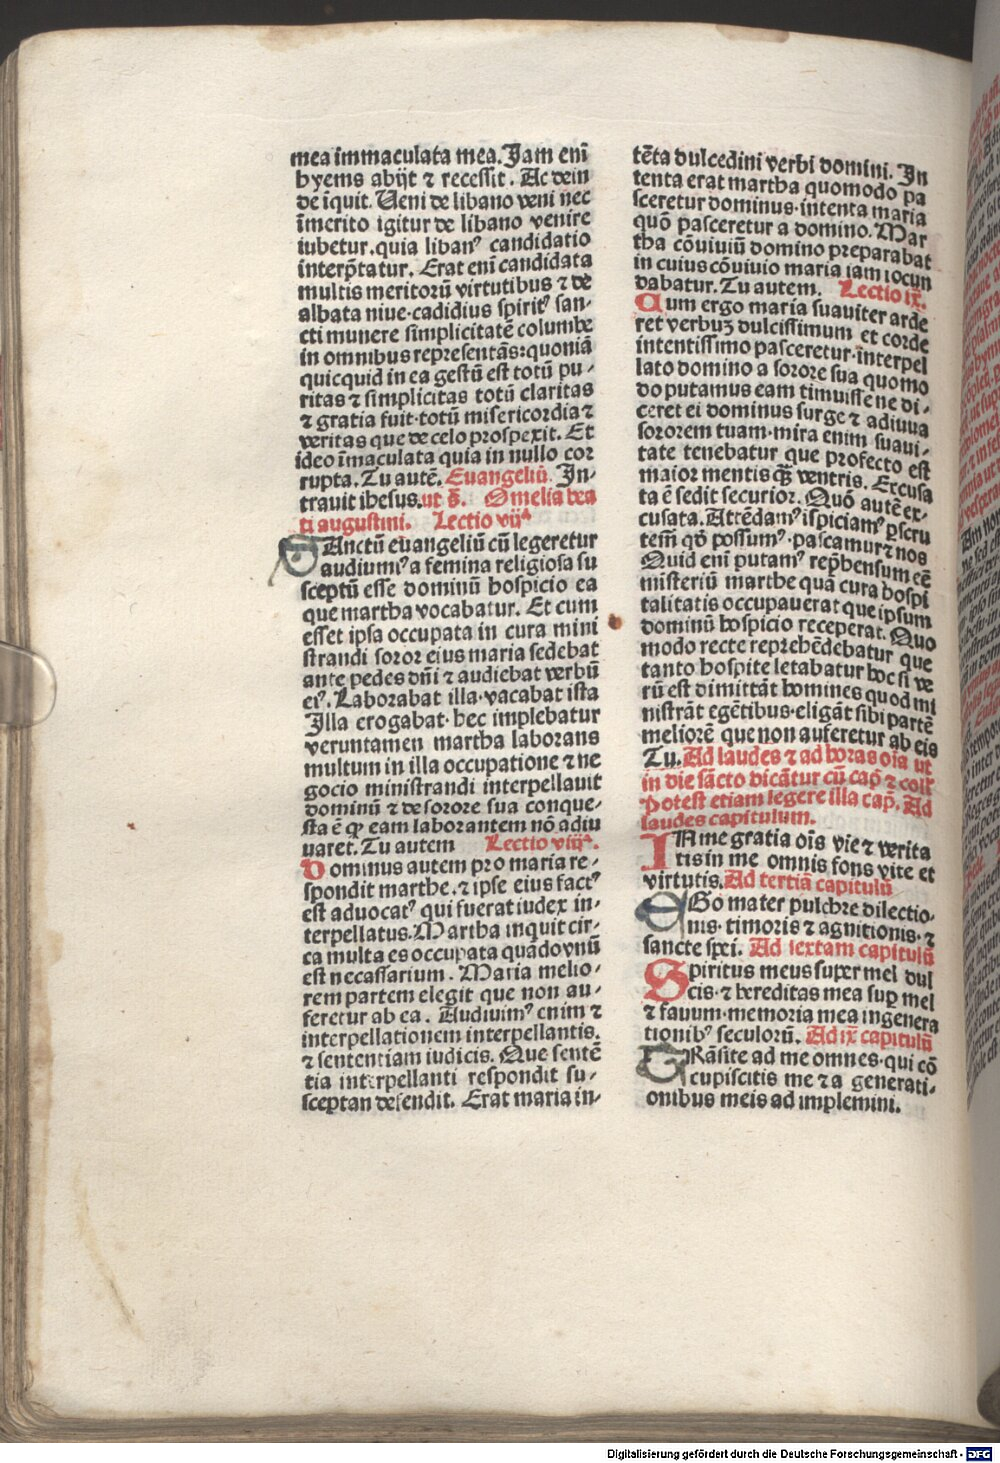 mea immaculata mea. Jam eni
hyems abijt ⁊ recessit. Ac dein
de īquit. Veni de libano veni nec
īmerito igitur de libano venire
iubetur. quia libanꝰ candidatio
interp̄tatur. Erat eni candidata
multis meritorū virtutibus ⁊ de
albata niue·cādidius spiritꝰ san-
cti munere simplicitatē columbe
in omnibus representās: quoniā
quicquid in ea gestū est totū pu-
ritas ⁊ simplicitas totū claritas
⁊ gratia fuit·totū misericordia ⁊
veritas que de celo prospexit. Et
ideo īmaculata quia in nullo cor
rupta. Tu autē. Euangeliū. In-
trauit ihesus. ut s̄. Omelia bea
ti augustini. Lectio vijª
SAnctū euangeliū cū legeretur
audiuimꝰ a femina religiosa su
sceptū esse dominū hospicio ea
que martha vocabatur. Et cum
esset ipsa occupata in cura mini
strandi soror eius maria sedebat
ante pedes dn̄i ⁊ audiebat verbū
eiꝰ. Laborabat illa·vacabat ista
Illa erogabat·hec implebatur
veruntamen martha laborans
multum in illa occupatione ⁊ ne
gocio ministrandi interpellauit
dominū ⁊ de sorore sua conque-
sta ē ꝙ eam laborantem nō adiu
uaret. Tu autem Lectio viijª.
Dominus autem pro maria re-
spondit marthe. ⁊ ipse eius factꝰ
est aduocatꝰ qui fuerat iudex in-
terpellatus. Martha inquit cir-
ca multa es occupata quādo vnū
est necassarium. Maria melio-
rem partem elegit que non au-
feretur ab ea. Audiuimꝰ enim ⁊
interpellationem interpellantis.
⁊ sententiam iudicis. Que sentē
tia interpellanti respondit su-
sceptan defendit. Erat maria in-
tēta dulcedini verbi domini. In
tenta erat martha quomodo pa
sceretur dominus·intenta maria
quō pasceretur a domino. Mar
tha cōuiuiū domino preparabat
in cuius cōuiuio maria iam iocun
dabatur. Tu autem. Lectio ix̄.
Cum ergo maria suauiter arde
ret verbuꝫ dulcissimum et corde
intentissimo pasceretur·interpel
lato domino a sorore sua quomo
do putamus eam timuisse ne di-
ceret ei dominus surge ⁊ adiuua
sororem tuam·mira enim suaui-
tate tenebatur que profecto est
maior mentis q̄ꝫ ventris. Excusa
ta ē sedit securior. Quō autē ex-
cusata. Attēdamꝰ īspiciamꝰ ꝑscru
tem̄ qd̄ possumꝰ·pascamur ⁊ nos
Quid eni putamꝰ rep̄hensum eē
misteriū marthe quā cura hospi
talitatis occupauerat que ipsum
dominū hospicio receperat. Quo
modo recte reprehēdebatur que
tanto hospite letabatur hoc si ve
rū est dimittāt homines quod mi
nistrāt egētibus·eligāt sibi partē
meliorē que non auferetur ab eis
Tu. Ad laudes ⁊ ad horas oīa ut
in die sācto dicātur cū cap̄ ⁊ coll̄
Potest etiam legere illa cap̄. Ad
laudes capitulum.
IN me gratia oīs vie ⁊ verita
tis in me omnis fons vite et
virtutis. Ad tertiā capitulū
EGo mater pulchre dilectio-
nis·timoris ⁊ agnitionis·⁊
sancte spei. Ad sextam capitulū
Spiritus meus super mel dul
cis·⁊ hereditas mea sup̄ mel
⁊ fauum·memoria mea ingenera
tionibꝰ seculorū. Ad ix̄ capitulū
TRāsite ad me omnes·qui cō
cupiscitis me ⁊ a generati-
onibus meis adimplemini.
Digitalisierung gefördert durch die Deutsche Forschungsgemeinschaft - DFG